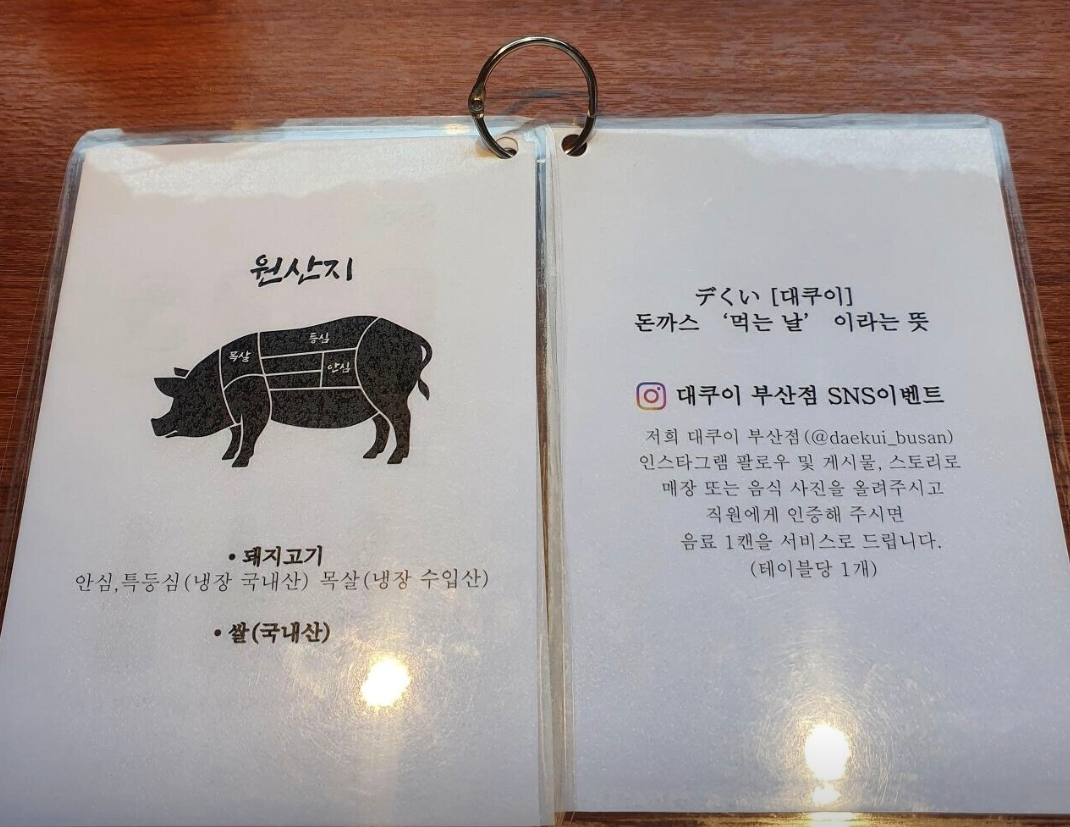 원산지
등심
목살
안심
• 돼지고기
안심,특등심(냉장 국내산) 목살(냉장 수입산)
• 쌀(국내산)
デくい [대쿠이]
돈까스 ‘먹는 날’ 이라는 뜻
대쿠이 부산점 SNS이벤트
저희 대쿠이 부산점(@daekui_busan)
인스타그램 팔로우 및 게시물, 스토리로
매장 또는 음식 사진을 올려주시고
직원에게 인증해 주시면
음료 1캔을 서비스로 드립니다.
(테이블당 1개)